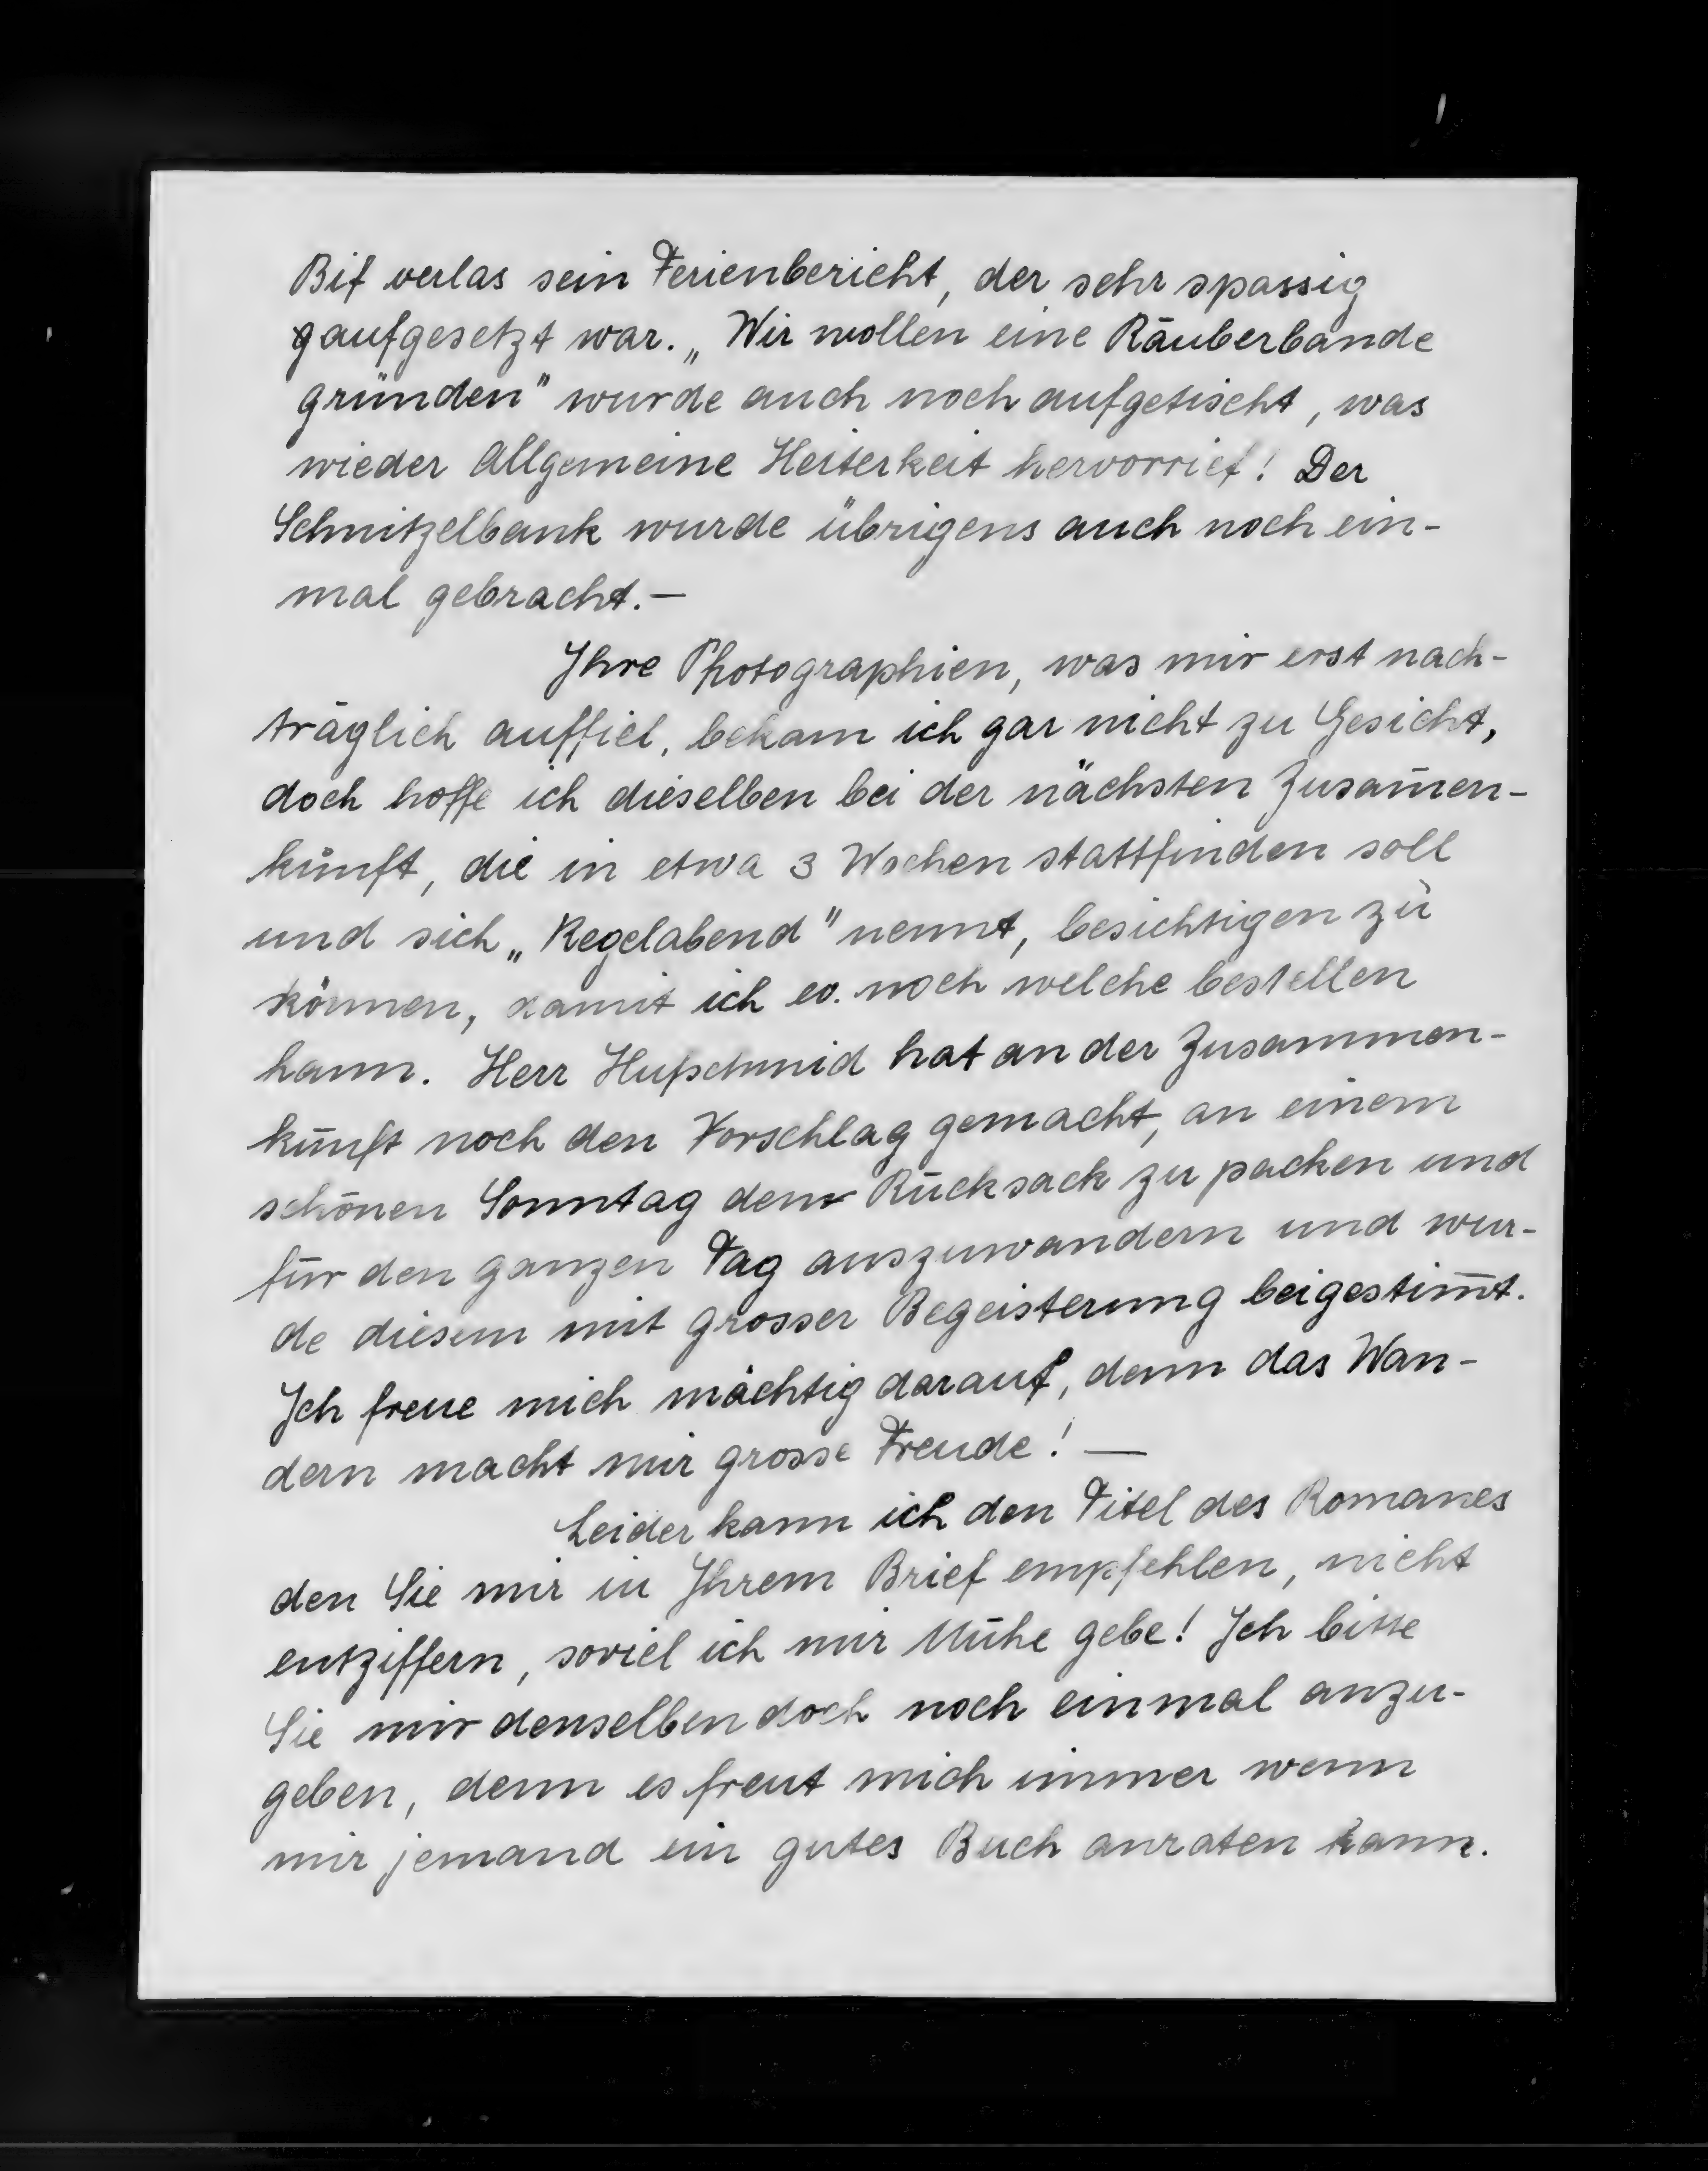 Bif verlas sein Ferienbericht, der sehr spassig
aufgesetzt war. „Wir wollen eine Räuberbande
gründen" wurde auch noch aufgetischt, was
wieder Allgemeine Heiterkeit hervorrief! Der
Schnitzelbank wurde übrigens auch noch ein-
mal gebracht.—
Ihre Photographien, was mir erst nach-
träglich auffiel, bekam ich gar nicht zu Gesicht,
doch hoffe ich dieselben bei der nächsten Zusam̅en-
kunft, die in etwa 3 Wochen stattfinden soll
und sich „Kegelabend" nennt, besichtigen zu
können, damit ich ev. noch welche bestellen
kann. Herr Hufschmid hat an der Zusammen-
kunft noch den Vorschlag gemacht, an einem
schönen Sonntag den Rucksack zu packen und
für den ganzen Tag auszuwandern und wur-
de diesem mit grosser Begeisterung beigestim̅t.
Ich freue mich mächtig darauf, denn das Wan-
dern macht mir grosse Freude! —
Leider kann ich den Titel des Romanes
den Sie mir in Ihrem Brief empfehlen, nicht
entziffern, soviel ich mir Mühe gebe! Ich bitte
Sie mir denselben doch noch einmal anzu-
geben, denn es freut mich immer wenn
mir jemand ein gutes Buch anraten kann.